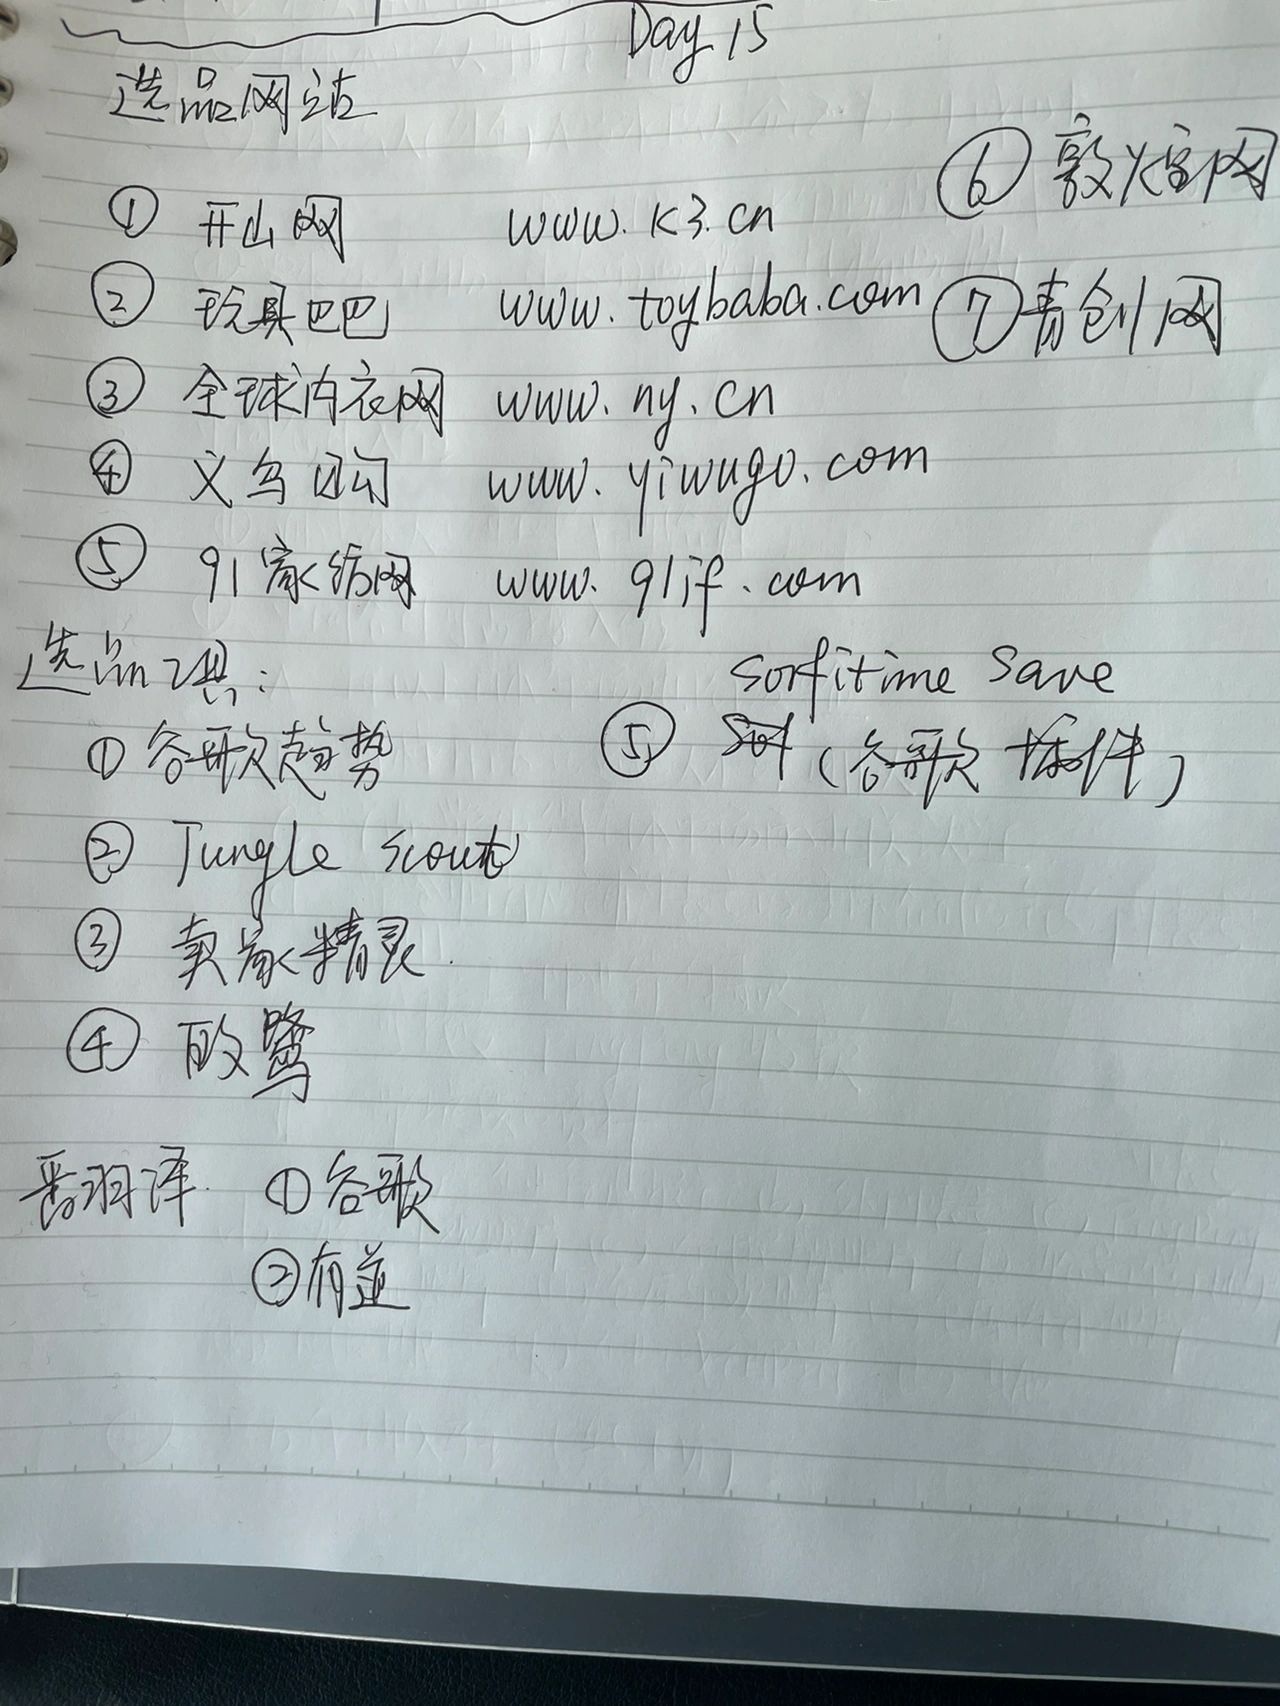 Day 15
选品网站
① 开山网 www.k3.cn
② 玩具巴巴 www.toybaba.com
③ 全球内衣网 www.ny.cn
④ 义乌购 www.yiwugo.com
⑤ 91家纺网 www.91jf.com
⑥ 敦煌网
⑦ 青创网
选品工具:
① 谷歌趋势
② Jungle scout
③ 卖家精灵.
④ 鸥鹭
sorfitime save
⑤ (谷歌插件)
翻译. ①谷歌
②有道